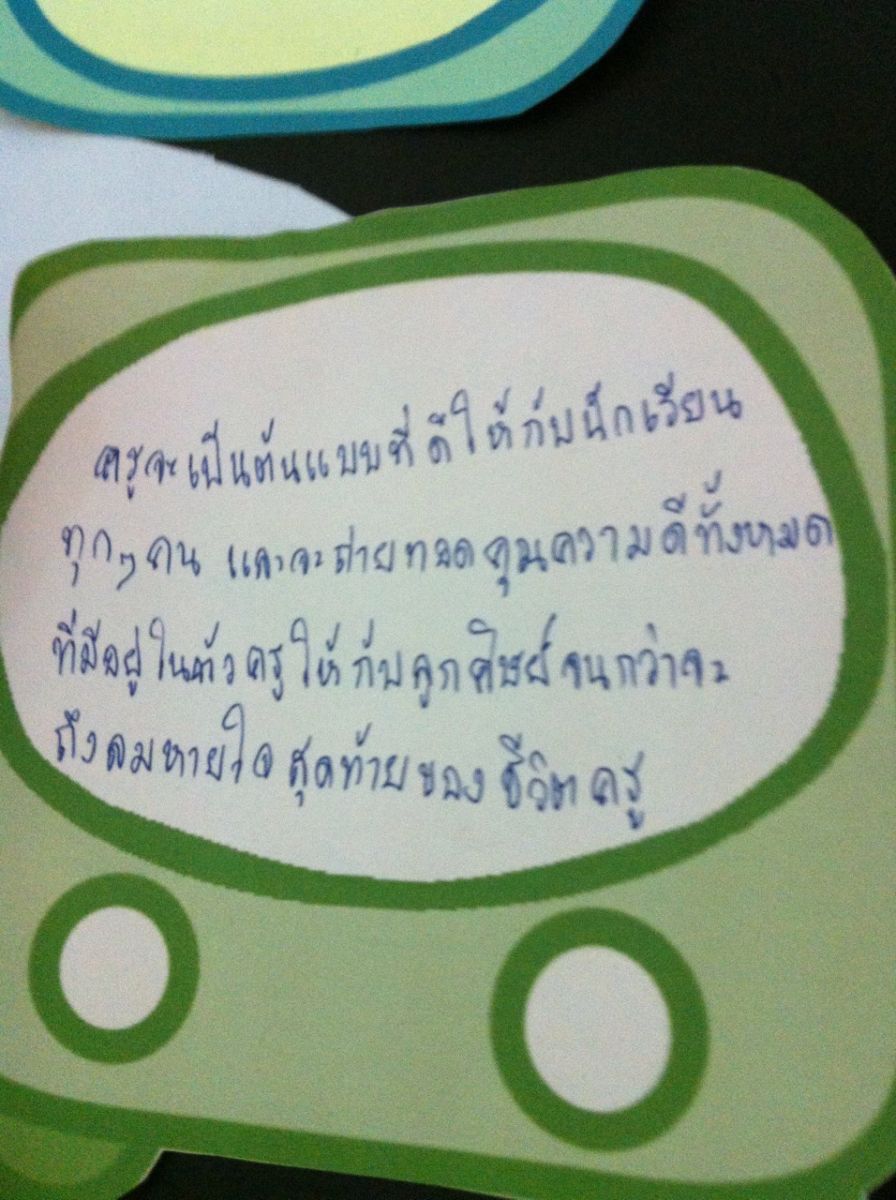 ครูจะเป็นต้นแบบที่ดีให้กับนักเรียน
ทุกๆคน และจะถ่ายทอดคุณความดีทั้งหมด
ที่มีอยู่ในตัวครูให้กับลูกศิษย์จนกว่าจะ
ถึงลมหายใจสุดท้ายของชีวิตครู